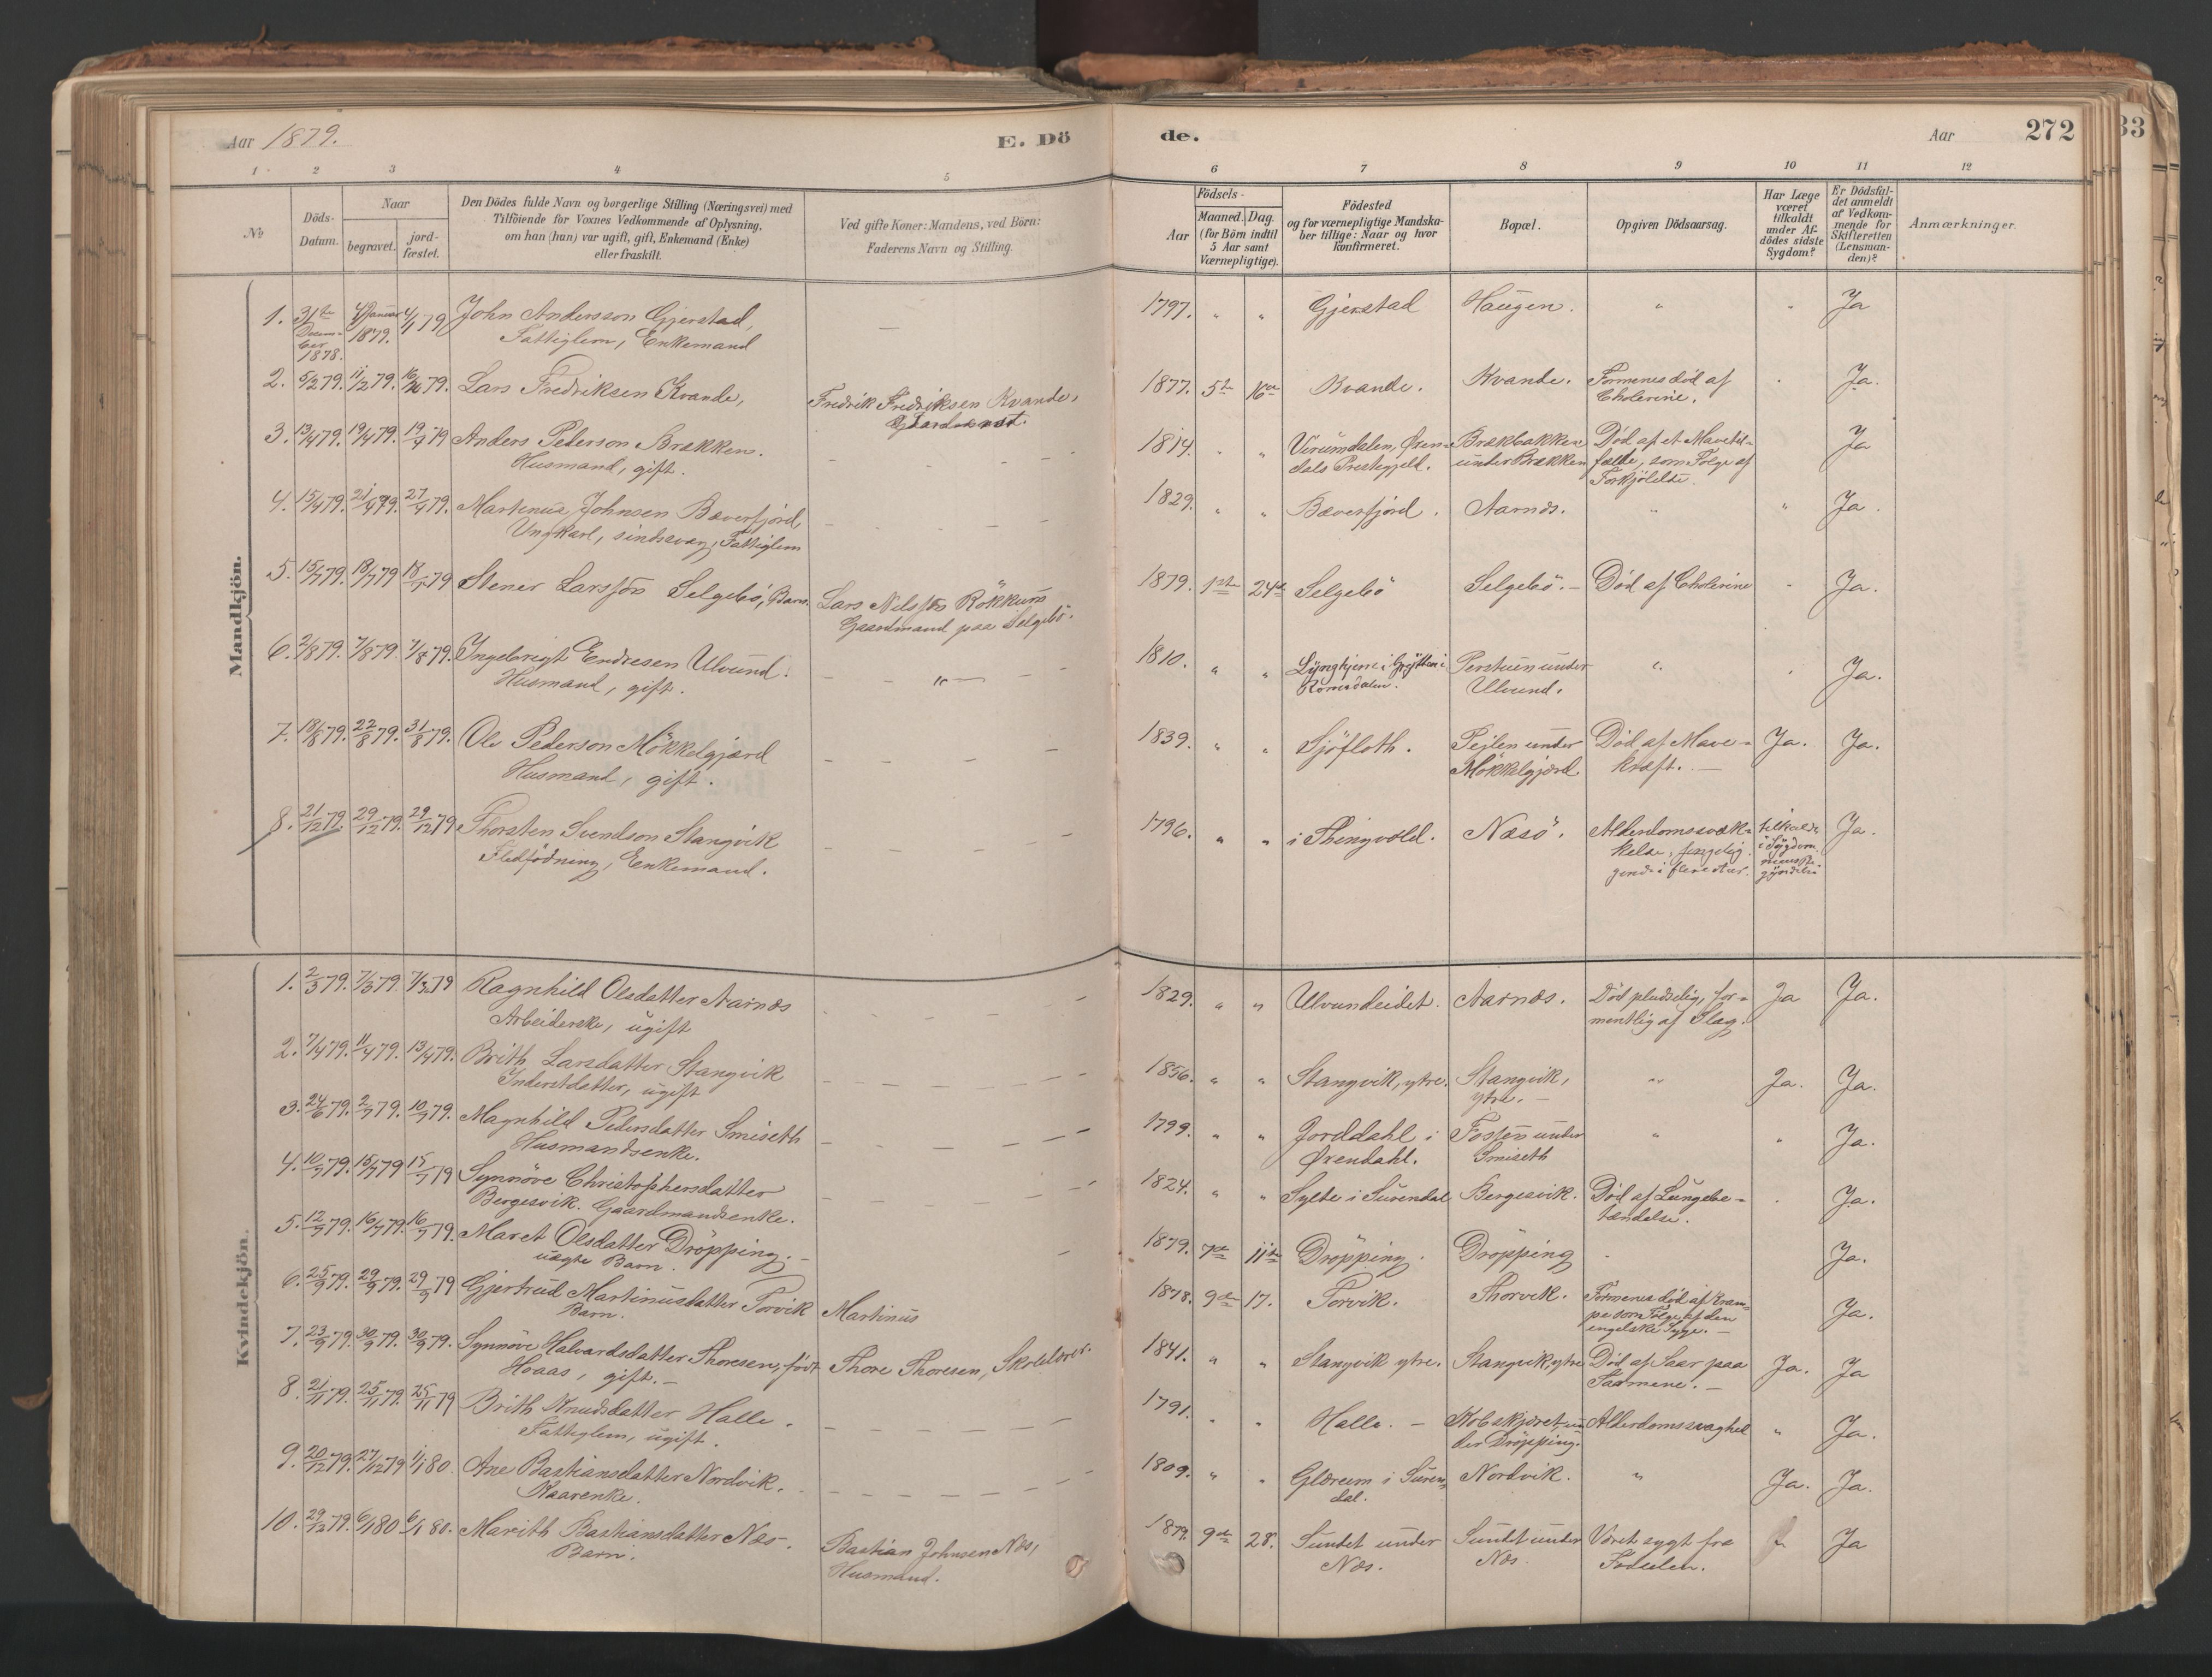 Aar 1879.
E. Dö
de.
Aar
272
33
1 2 3 4 5 6 7 8 9 10 11 12
No
Döds-
Datum.
Naar
begravet.
jord-
fæstet.
Den Dödes fulde Navn og borgerlige Stilling (Næringsvei) med
Tilföiende for Voxnes Vedkommende af Oplysning,
om han (hun) var ugift, gift, Enkemand (Enke)
eller fraskilt.
Ved gifte Koner: Mandens, ved Börn:
Faderens Navn og Stilling.
Födsels-
Aar
Maaned. Dag.
(for Börn indtil
5 Aar samt
Værnepligtige).
Födested
og for værnepligtige Mandska-
ber tillige: Naar og hvor
konfirmeret.
Bopæl.
Opgiven Dödsaarsag.
Har Læge
været
tilkaldt
under Af-
dödes sidste
Sygdom?
Er Dödsfal-
det anmeldt
af Vedkom-
mende for
Skifteretten
(Lensman-
den)?
Anmærkninger.
Mandkjön.
1. 31te Decem-
ber
1878. 4 Januar
1879. 4/1 79 John Andersson Gjerstad,
Fattiglem, Enkemand
— 1797. " " Gjerstad Haugen. " " Ja
2. 5/2 79. 11/2 79. 16/2 79. Lars Fredriksen Kvande,
Fredrik Fredriksen Kvande,
Gaardmand.
1877. 5te 16de Kvande. Kvande. Formenes död af
Cholerine. Ja.
3. 13/4 79. 19/4 79. 19/4 79 Anders Pederson Brækken.
Husmand, gift.
1814. " " Virumdalen, Øxen-
dals Prestegjeld. Brækbakken
under Brækken Död af et Mavetil-
fælde, som Følge af
Forkjölelse. Ja
4. 15/4 79. 21/4 79. 27/4 79. Martinus Johnsen Bæverfjord
Ungkarl, sindssvag, Fattiglem
1829. " " Bæverfjord. Aarnes. " " Ja.
5. 15/7 79. 18/7 79 18/7 79 Stener Larssön Selgebö, Barn.
Lars Nilssön Rökkum
Gaardmand paa Selgebö.
1879. 1ste 24de Selgebö Selgebö. — Död af Cholerine Ja.
6. 2/8 79. 7/8 79 7/8 79. Ingebrigt Endresen Ulvund.
Husmand, gift.
1810. " " Lyngheim i Grytten i
Romsdalen. Perstuen under
Ulvund. " Ja.
7. 18/8 79. 22/8 79. 31/8 79. Ole Pederson Mökkelgjærd
Husmand, gift.
1839. " " Sjöfloth. Pejlen under
Mökkelgjærd Död af Mave-
kræft. — Ja. Ja.
8. 21/12 79. 29/12 79. 29/12 79. Thorsten Svendson Stangvik
Flødfödning, Enkemand.
1796. " " i Thingvold. Næsö. Alderdomssvæk-
kelse, sengelig-
gende i flere Aar. tilkaldt
i Sygdom-
mens Be-
gyndelse Ja.
Kvindekjön.
1. 2/3 79. 7/3 79. 7/3 79 Ragnhild Olsdatter Aarnes
Arbeiderske, ugift
1829. " " Ulvundeidet. Aarnes. Död pludselig, for-
mentlig af Slag. Ja Ja.
2. 7/4 79. 11/4 79. 13/4 79. Brith Larsdatter Stangvik
Inderstdatter, ugift
1856. " " Stangvik, ytre. Stangvik,
ytre. — " Ja. Ja.
3. 24/6 79. 2/7 79. 10/7 79. Magnhild Pedersdatter Smiseth
Husmandsenke.
1799. " " Jorddahl i
Øxendahl. Fosten under
Smiseth " " Ja.
4. 10/7 79. 15/7 79 15/7 79 Synnöve Christophersdatter
Bergesvik. Gaardmandsenke.
1824. " " Sylte i Surendal Bergesvik. Död af Lungebe-
tændelse. Ja.
5. 12/9 79. 16/9 79. 16/9 79. Maret Olsdatter Dröpping. —
uægte Barn.
1879. 7de 11te Dröpping. Dröpping Ja.
6. 25/9 79. 29/9 79. 29/9 79 Gjertrud Martinusdatter Torvik
Barn.
Martinus
1878. 9de 17. Torvik. Thorvik. Formenes död af Kram-
pe som Følge af den
engelske Syge. — Ja.
7. 23/9 79. 30/9 79. 30/9 79. Synnöve Halvardsdatter Thoresen, född
Hoaas, gift. —
Thore Thoresen, Skolelærer.
1841. " " Stangvik ytre. Stangvik, ytre Död af Saar paa
Tarmene. — Ja. Ja
8. 21/11 79. 25/11 79. 25/11 79 Brith Knudsdatter Halle.
Fattiglem, ugift.
1791. " " Halle. — Kobskjæret, un-
der Dröpping. Alderdomssvaghed " Ja.
9. 20/12 79. 27/12 79 1/1 80. Ane Bastiansdatter Nordvik.
Kaarenke.
1809. " " Glærum i Suren-
dal. Nordvik. " Ja. Ja.
10. 29/12 79. 6/1 80 6/1 80. Marith Bastiansdatter Næs.
Barn.
Bastian Johnsen Næs,
Husmand.
1879. 9de 28. Sundet under
Næs. Sundet under
Næs. Været sygt fra
Födselen. Ja